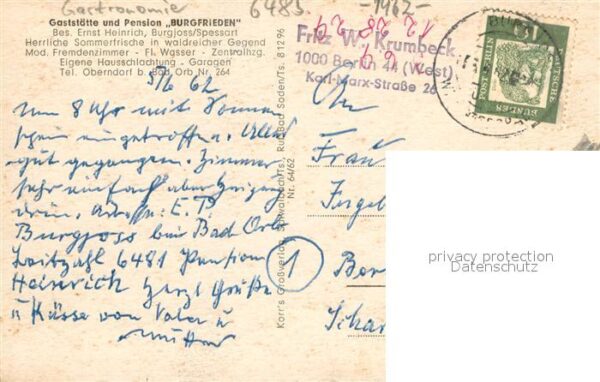 Gastronomie
6483
-1962-
Gaststätte und Pension „BURGFRIEDEN"
Bes. Ernst Heinrich, Burgjoss/Spessart
Herrliche Sommerfrische in waldreicher Gegend
Mod. Fremdenzimmer - Fl. Wasser - Zentralhzg.
Eigene Hausschlachtung - Garagen
Tel. Oberndorf b. Bad Orb Nr. 264
Fritz W. Krumbeck
1000 Berlin 44 (West)
Karl-Marx-Straße 26
DEUTSCHE
BUNDES
62
Um 8 Uhr mit Sonnen
schein eingetroffen. Alles
gut gegangen. Zimmer
sehr einfach aber
drin. E. P.
Burgjoss bei Bad Orb
Leitzahl 6481 Pension
Heinrich Herzl Grüße
u Küsse von Vater u
Mutter
Korr's Großverlag, Schwalbach/Ts., Ruf Bad Soden/Ts. 812 96
Nr. 64/62
An
Frau
Ingeb
1
Ber
Schar
privacy protection
Datenschutz